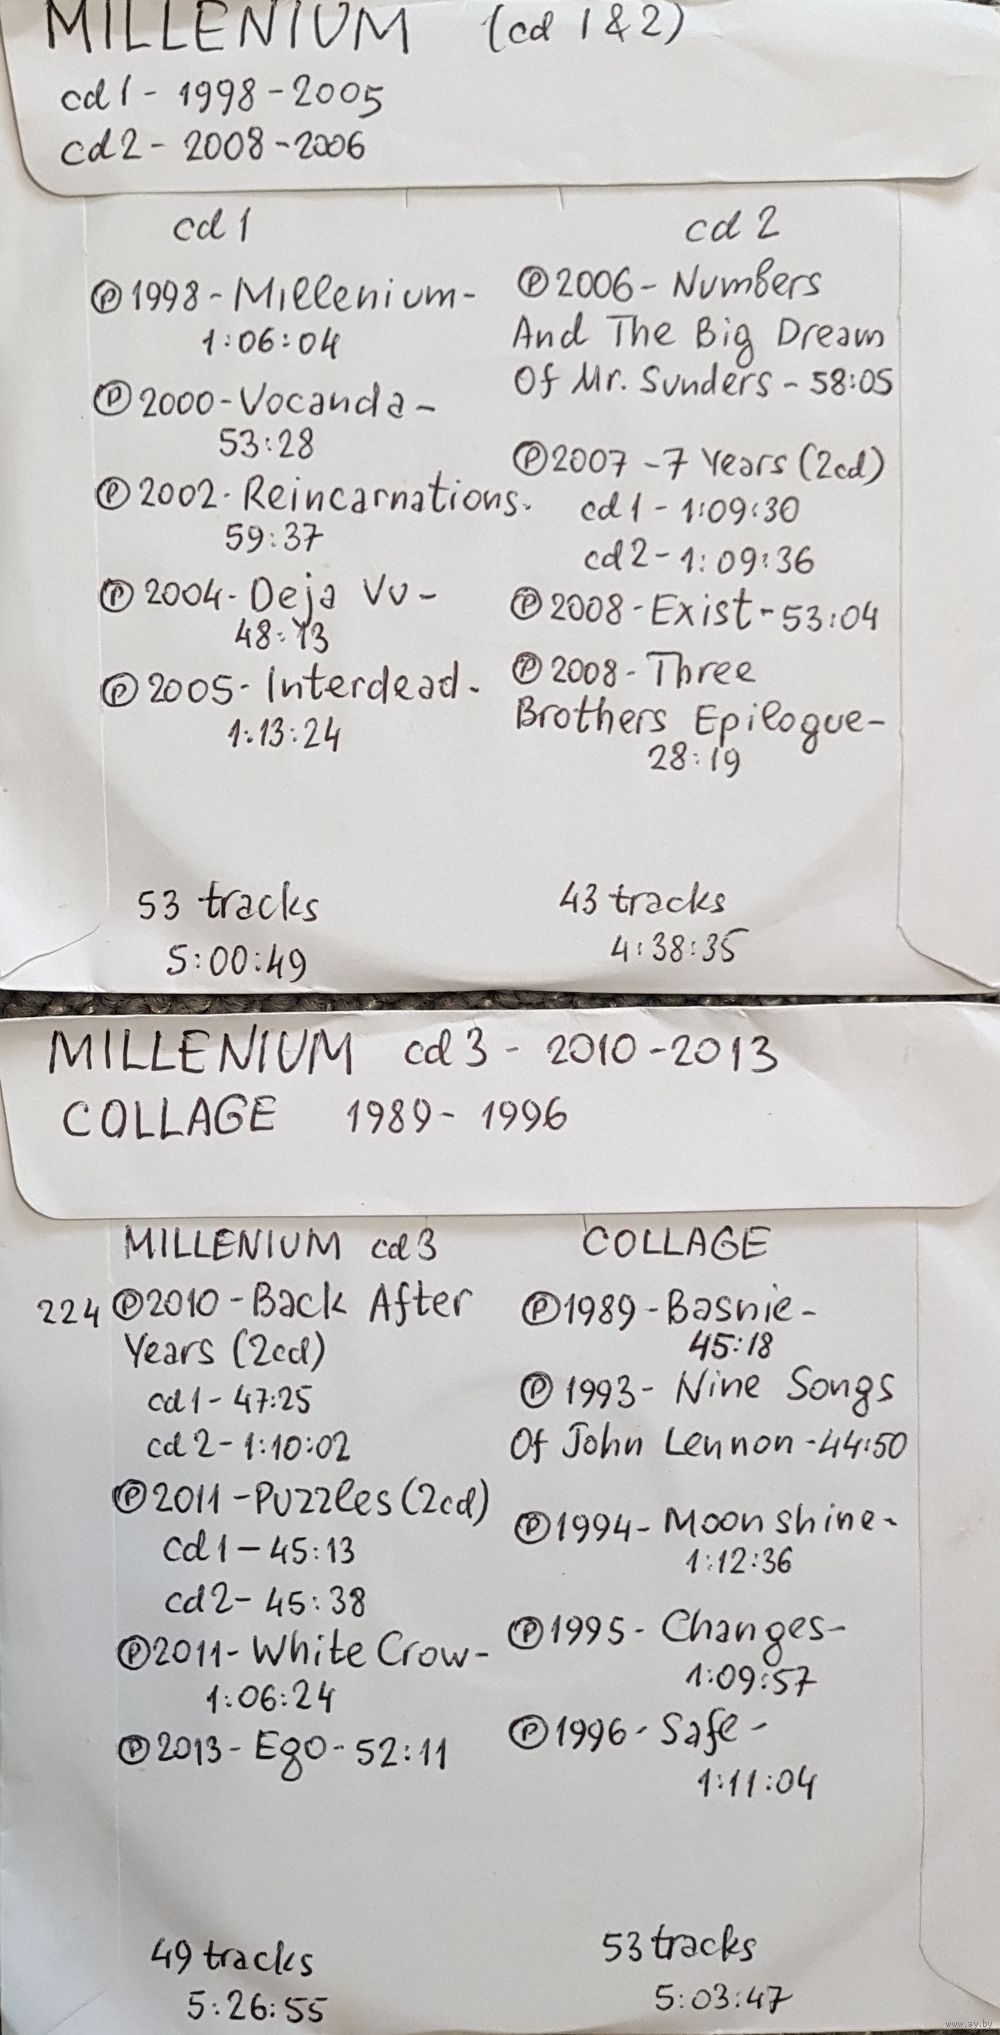 MILLENIUM (cd 1 & 2)
cd 1 - 1998 - 2005
cd 2 - 2008 - 2006
cd 1
Ⓟ 1998 - Millenium -
1:06:04
Ⓟ 2000 - Vocanda -
53:28
Ⓟ 2002 - Reincarnations -
59:37
Ⓟ 2004 - Deja Vu -
48:13
Ⓟ 2005 - Interdead -
1:13:24
53 tracks
5:00:49
cd 2
Ⓟ 2006 - Numbers
And The Big Dream
Of Mr. Sunders - 58:05
Ⓟ 2007 - 7 Years (2cd)
cd 1 - 1:09:30
cd 2 - 1:09:36
Ⓟ 2008 - Exist - 53:04
Ⓟ 2008 - Three
Brothers Epilogue -
28:19
43 tracks
4:38:35
MILLENIUM cd 3 - 2010 - 2013
COLLAGE 1989 - 1996
MILLENIUM cd 3
224 Ⓟ 2010 - Back After
Years (2cd)
cd 1 - 47:25
cd 2 - 1:10:02
Ⓟ 2011 - Puzzles (2cd)
cd 1 - 45:13
cd 2 - 45:38
Ⓟ 2011 - White Crow -
1:06:24
Ⓟ 2013 - Ego - 52:11
49 tracks
5:26:55
COLLAGE
Ⓟ 1989 - Basnie -
45:18
Ⓟ 1993 - Nine Songs
Of John Lennon - 44:50
Ⓟ 1994 - Moonshine -
1:12:36
Ⓟ 1995 - Changes -
1:09:57
Ⓟ 1996 - Safe -
1:11:04
53 tracks
5:03:47
www.ay.by